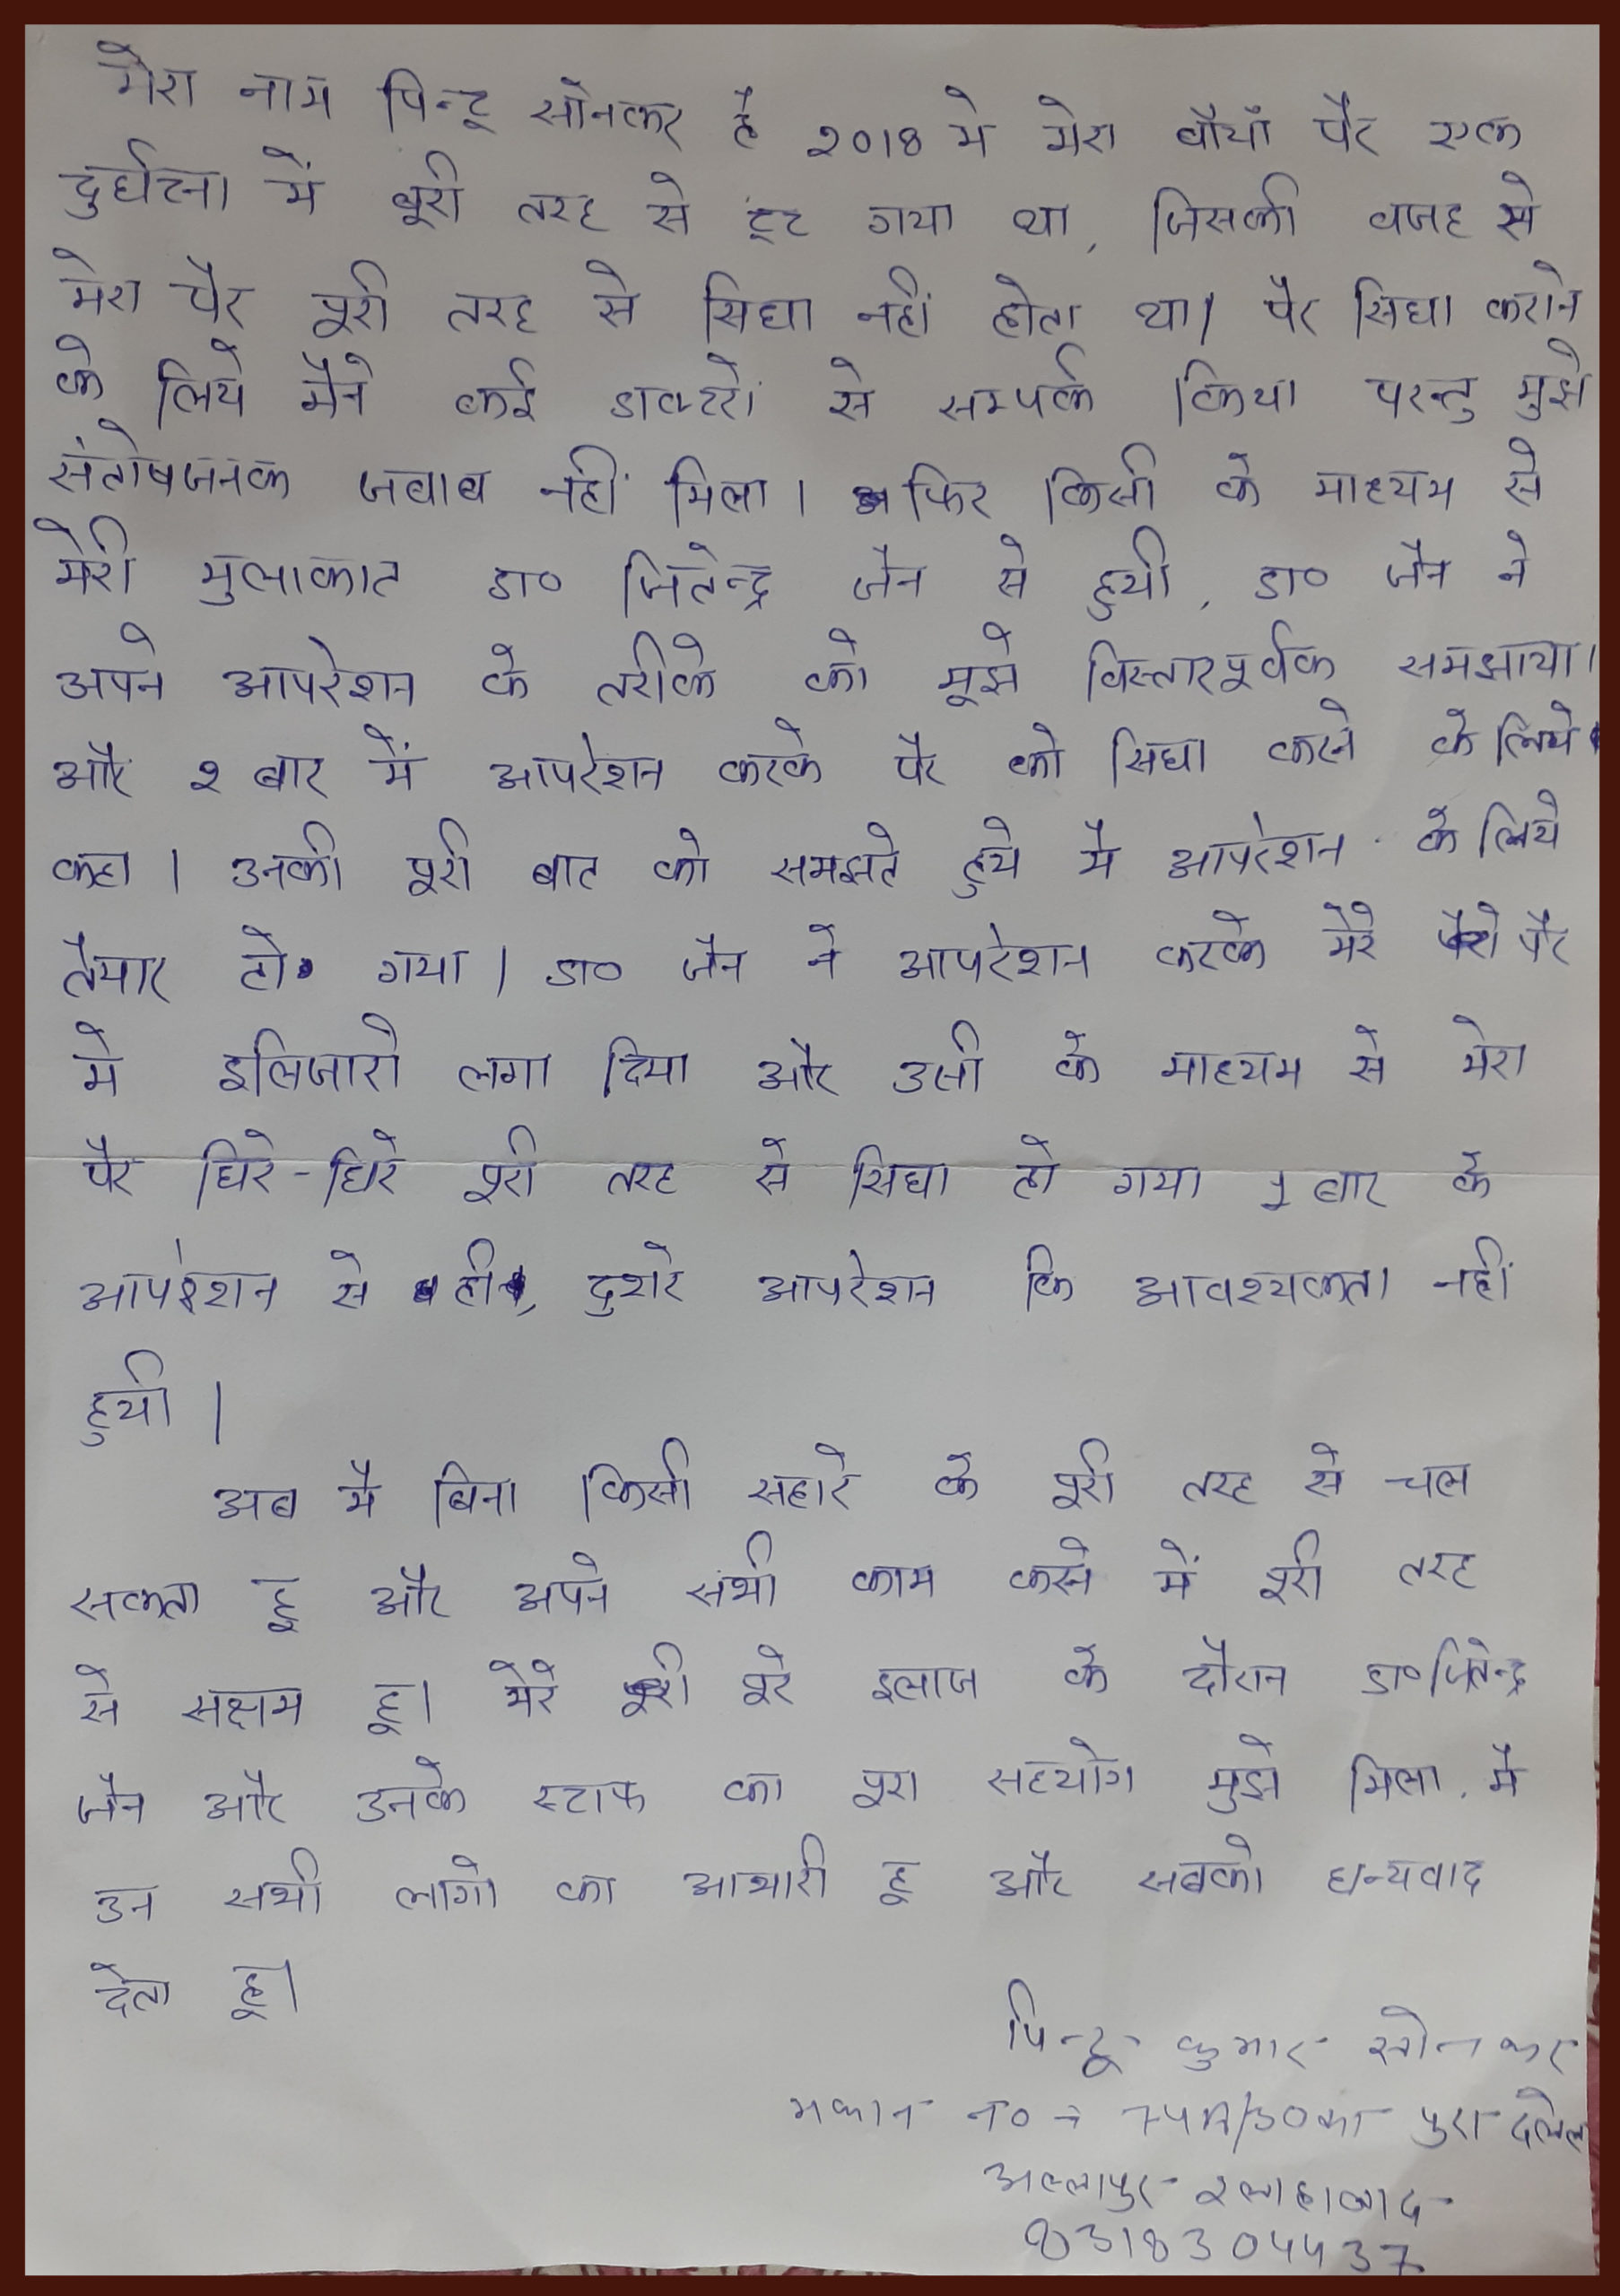 मेरा नाम पिन्टू सोनकर है 2018 मे मेरा बाँयाँ पैर एक
दुर्घटना में बूरी तरह से टूट गया था, जिसकी वजह से
मेरा पैर पूरी तरह से सिधा नहीं होता था। पैर सिधा कराने
के लिये मैने कई डाक्टरो से सम्पर्क किया परन्तु मुझे
संतोषजनक जवाब नहीं मिला। फिर किसी के माध्यम से
मेरी मुलाकात डा० जितेन्द्र जैन से हुयी, डा० जैन ने
अपने आपरेशन के तरीके को मूझे विस्तारपूर्वक समझाया।
और २ बार में आपरेशन करके पैर को सिधा करने के लिये
कहा। उनकी पूरी बात को समझते हुये मै आपरेशन के लिये
तैयार हो गया। डा० जैन ने आपरेशन करके मेरे पैर
मे इलिजारो लगा दिया और उसी के माध्यम से मेरा
पैर धिरे-धिरे पूरी तरह से सिधा हो गया 1 बार के
आपरेशन से ही, दुशरे आपरेशन कि आवश्यकता नहीं
हुयी।
अब मै बिना किसी सहारे के पूरी तरह से चल
सकता हू और अपने सभी काम करने में पूरी तरह
से सक्षम हू। मेरे पूरे इलाज के दौरान डा० जितेन्द्र
जैन और उनके स्टाफ का पूरा सहयोग मुझे मिला. मै
उन सभी लागो का आभारी हू और सबको धन्यवाद
देता हू।
पिन्टू कुमार सोनकर
मकान न० → पुरा दलेल
अल्लापुर इलाहाबाद
8318304437